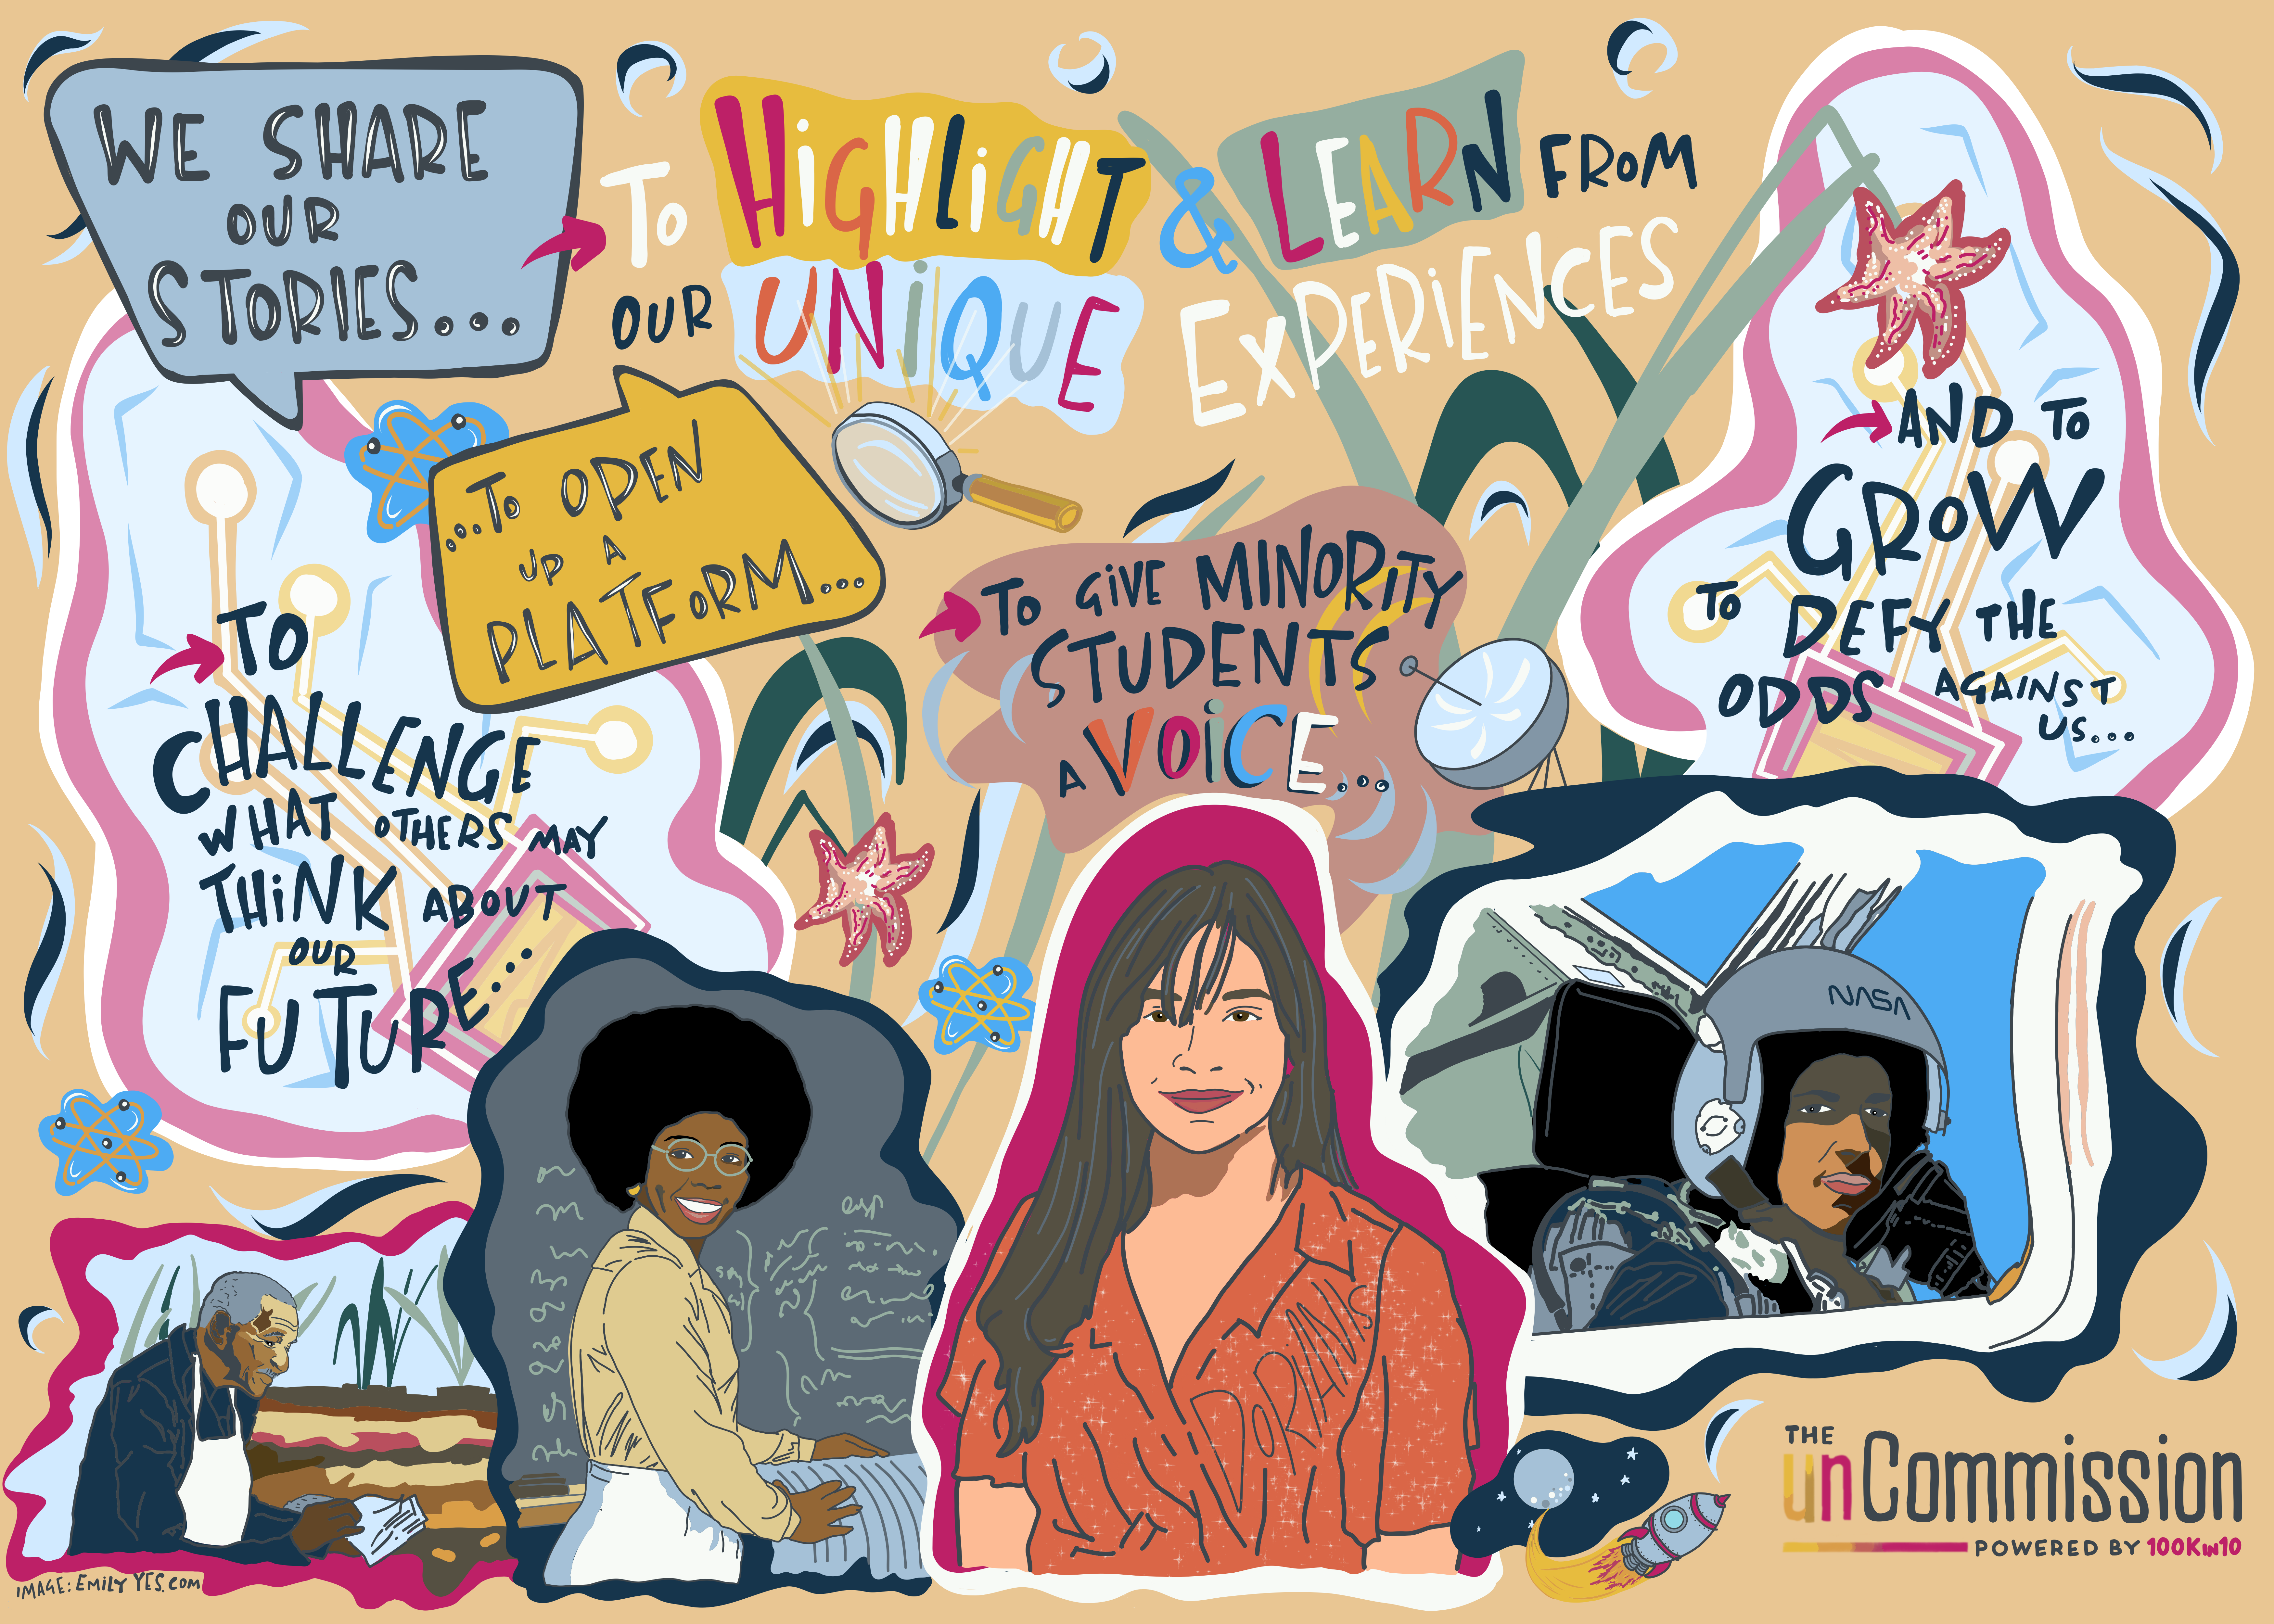 WE SHARE
OUR
STORIES...
To HiGHLiGHT & LEARN FRoM
OUR UNiQUE EXPERiENCES
...To OPEN
UP A
PLATFoRM...
To GiVE MINORITY
STUDENTS
A VOiCE...
AND To
GRoW
To DEFY THE
ODDS AGAINST
US...
TO
CHALLENGE
WHAT OTHERS MAY
THiNK ABOUT
OUR
FUTURE...
NASA
DORIANIS
THE
unCommission
POWERED BY 100Kin10
IMAGE: EMILY YES.COM